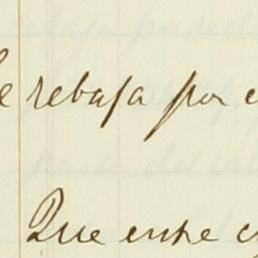 e rebaja por c
Que entre c